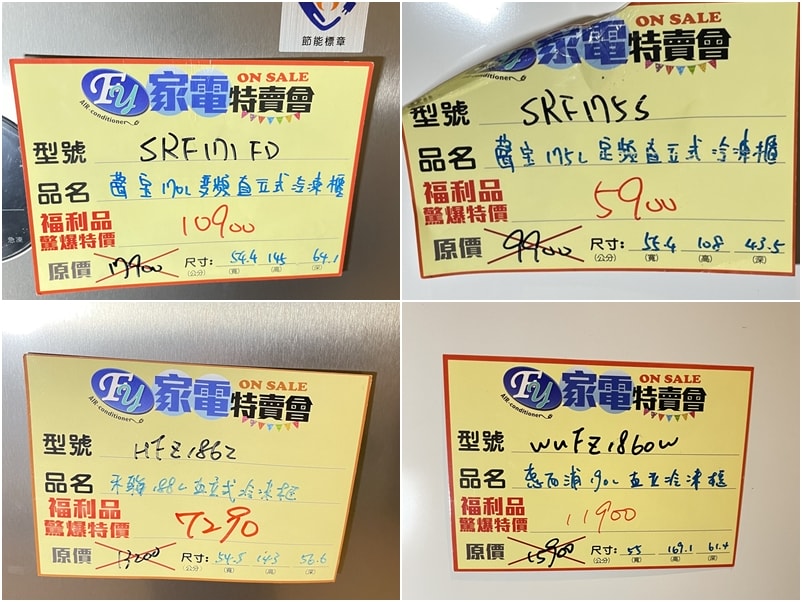 節能標章
急凍
FY 家電特賣會 ON SALE
AIR conditioner
型號 SRF171FD
品名 萬宝170L變頻直立式冷凍櫃
福利品
驚爆特價 10900
原價 17900 尺寸: 54.4 145 64.1
(公分) (寬) (高) (深)
家電特賣會 ON SALE
conditioner
型號 SRF175S
品名 萬宝175L定頻直立式冷凍櫃
福利品
驚爆特價 5900
原價 9900 尺寸: 55.4 108 43.5
(公分) (寬) (高) (深)
FY 家電特賣會 ON SALE
AIR conditioner
型號 HFZ1862
品名 禾聯188L直立式冷凍櫃
福利品
驚爆特價 7290
原價 13200 尺寸: 54.5 143 56.6
(公分) (寬) (高) (深)
FY 家電特賣會 ON SALE
AIR conditioner
型號 WUFZ1860W
品名 惠而浦190L直立冷凍櫃
福利品
驚爆特價 11900
原價 15900 尺寸: 55 169.1 61.4
(公分) (寬) (高) (深)